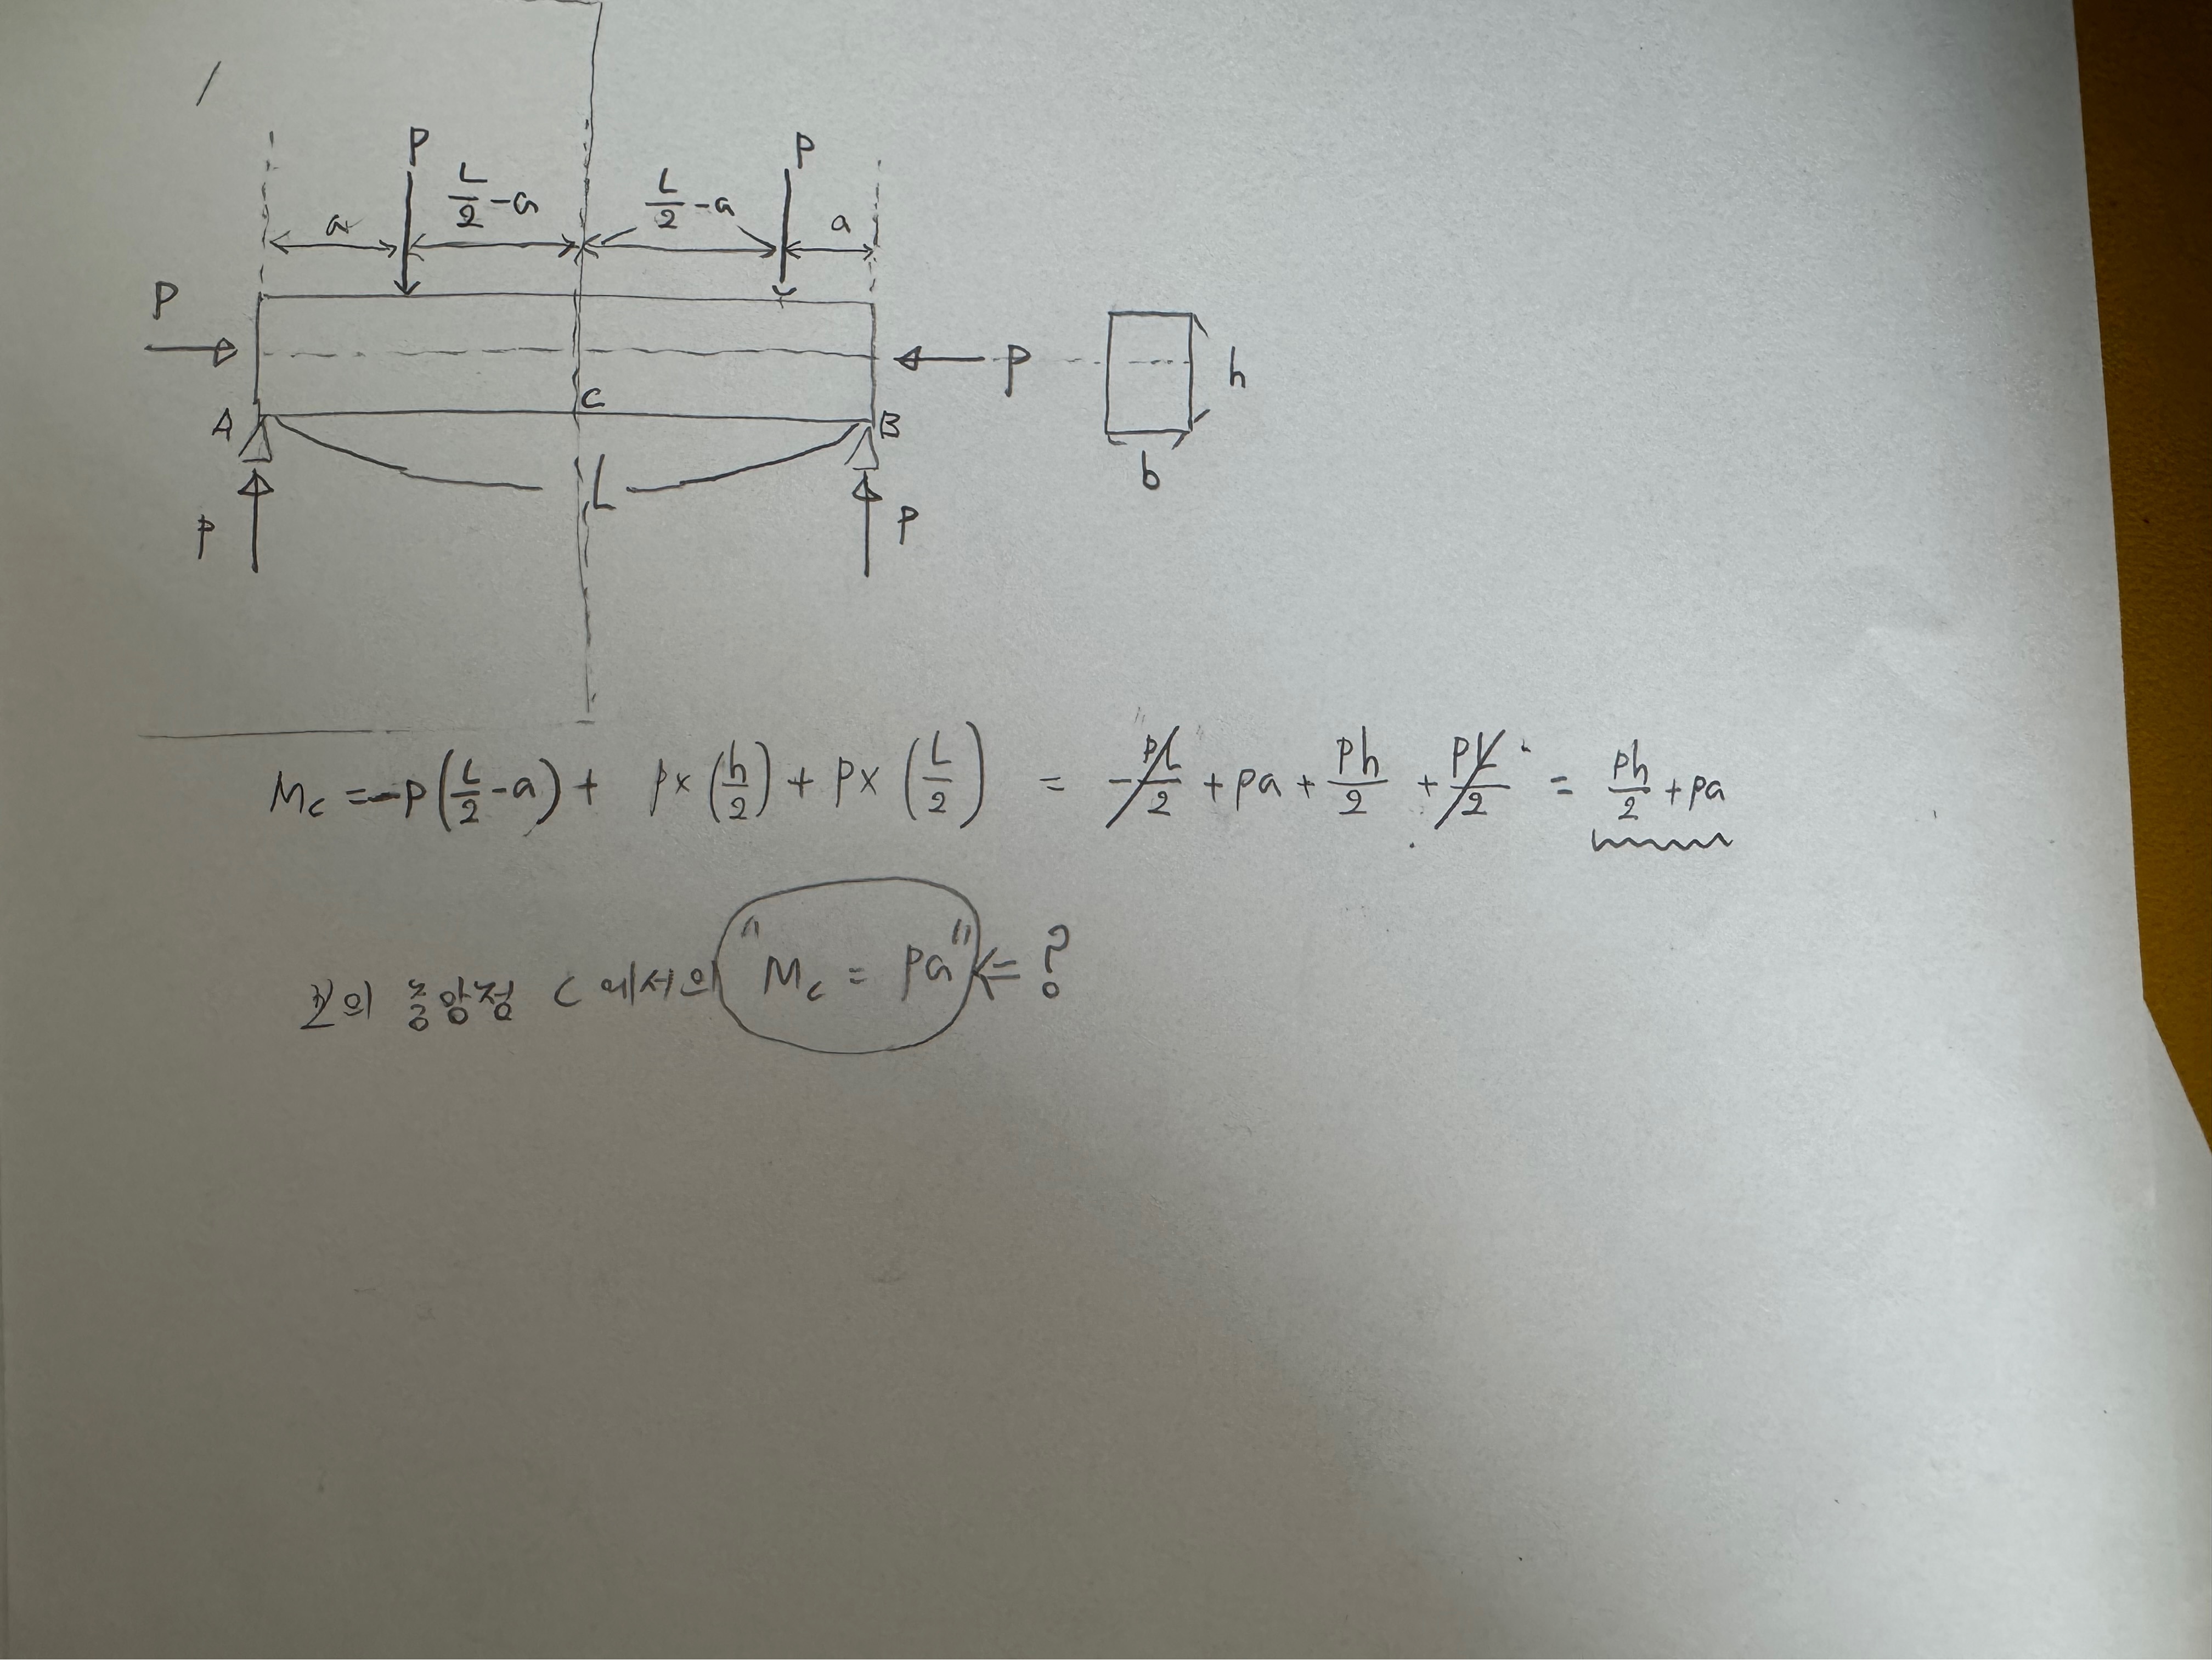 P P
L/2 - a L/2 - a
a a
P P h
A C B
L b
P P
Mc = -P(L/2 - a) + P×(h/2) + P×(L/2) = -PL/2 + Pa + Ph/2 + PL/2 = Ph/2 + Pa
보의 중앙점 C에서의 "Mc = Pa" ⇐ ?